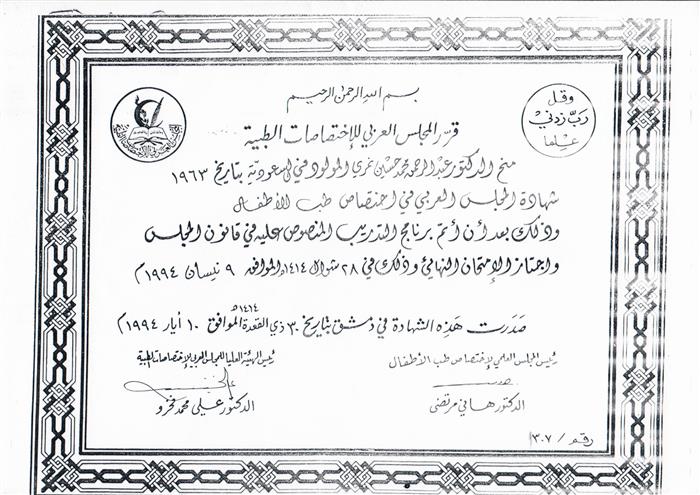 بسم الله الرحمن الرحيم
وقل
رب زدني
علما
قرر المجلس العربي للإختصاصات الطبية
منح الدكتور عبدالرحمن محمد حسين نمري المولود في السعودية بتاريخ ١٩٦٣
شهادة المجلس العربي في اختصاص طب الأطفال
وذلك بعد أن أتم برنامج التدريب المنصوص عليه في قانون المجلس
واجتاز الإمتحان النهائي وذلك في ٢٨ شوال ١٤١٤ه الموافق ٩ نيسان ١٩٩٤م
صدرت هذه الشهادة في دمشق بتاريخ ٣٠ ذي القعدة ١٤١٤ه الموافق ١٠ أيار ١٩٩٤م
رئيس المجلس العلمي لإختصاص طب الأطفال
الدكتور هاني مرتضى
رئيس الهيئة العليا للمجلس العربي للإختصاصات الطبية
الدكتور علي محمد فخرو
رقم / ٣٠٧